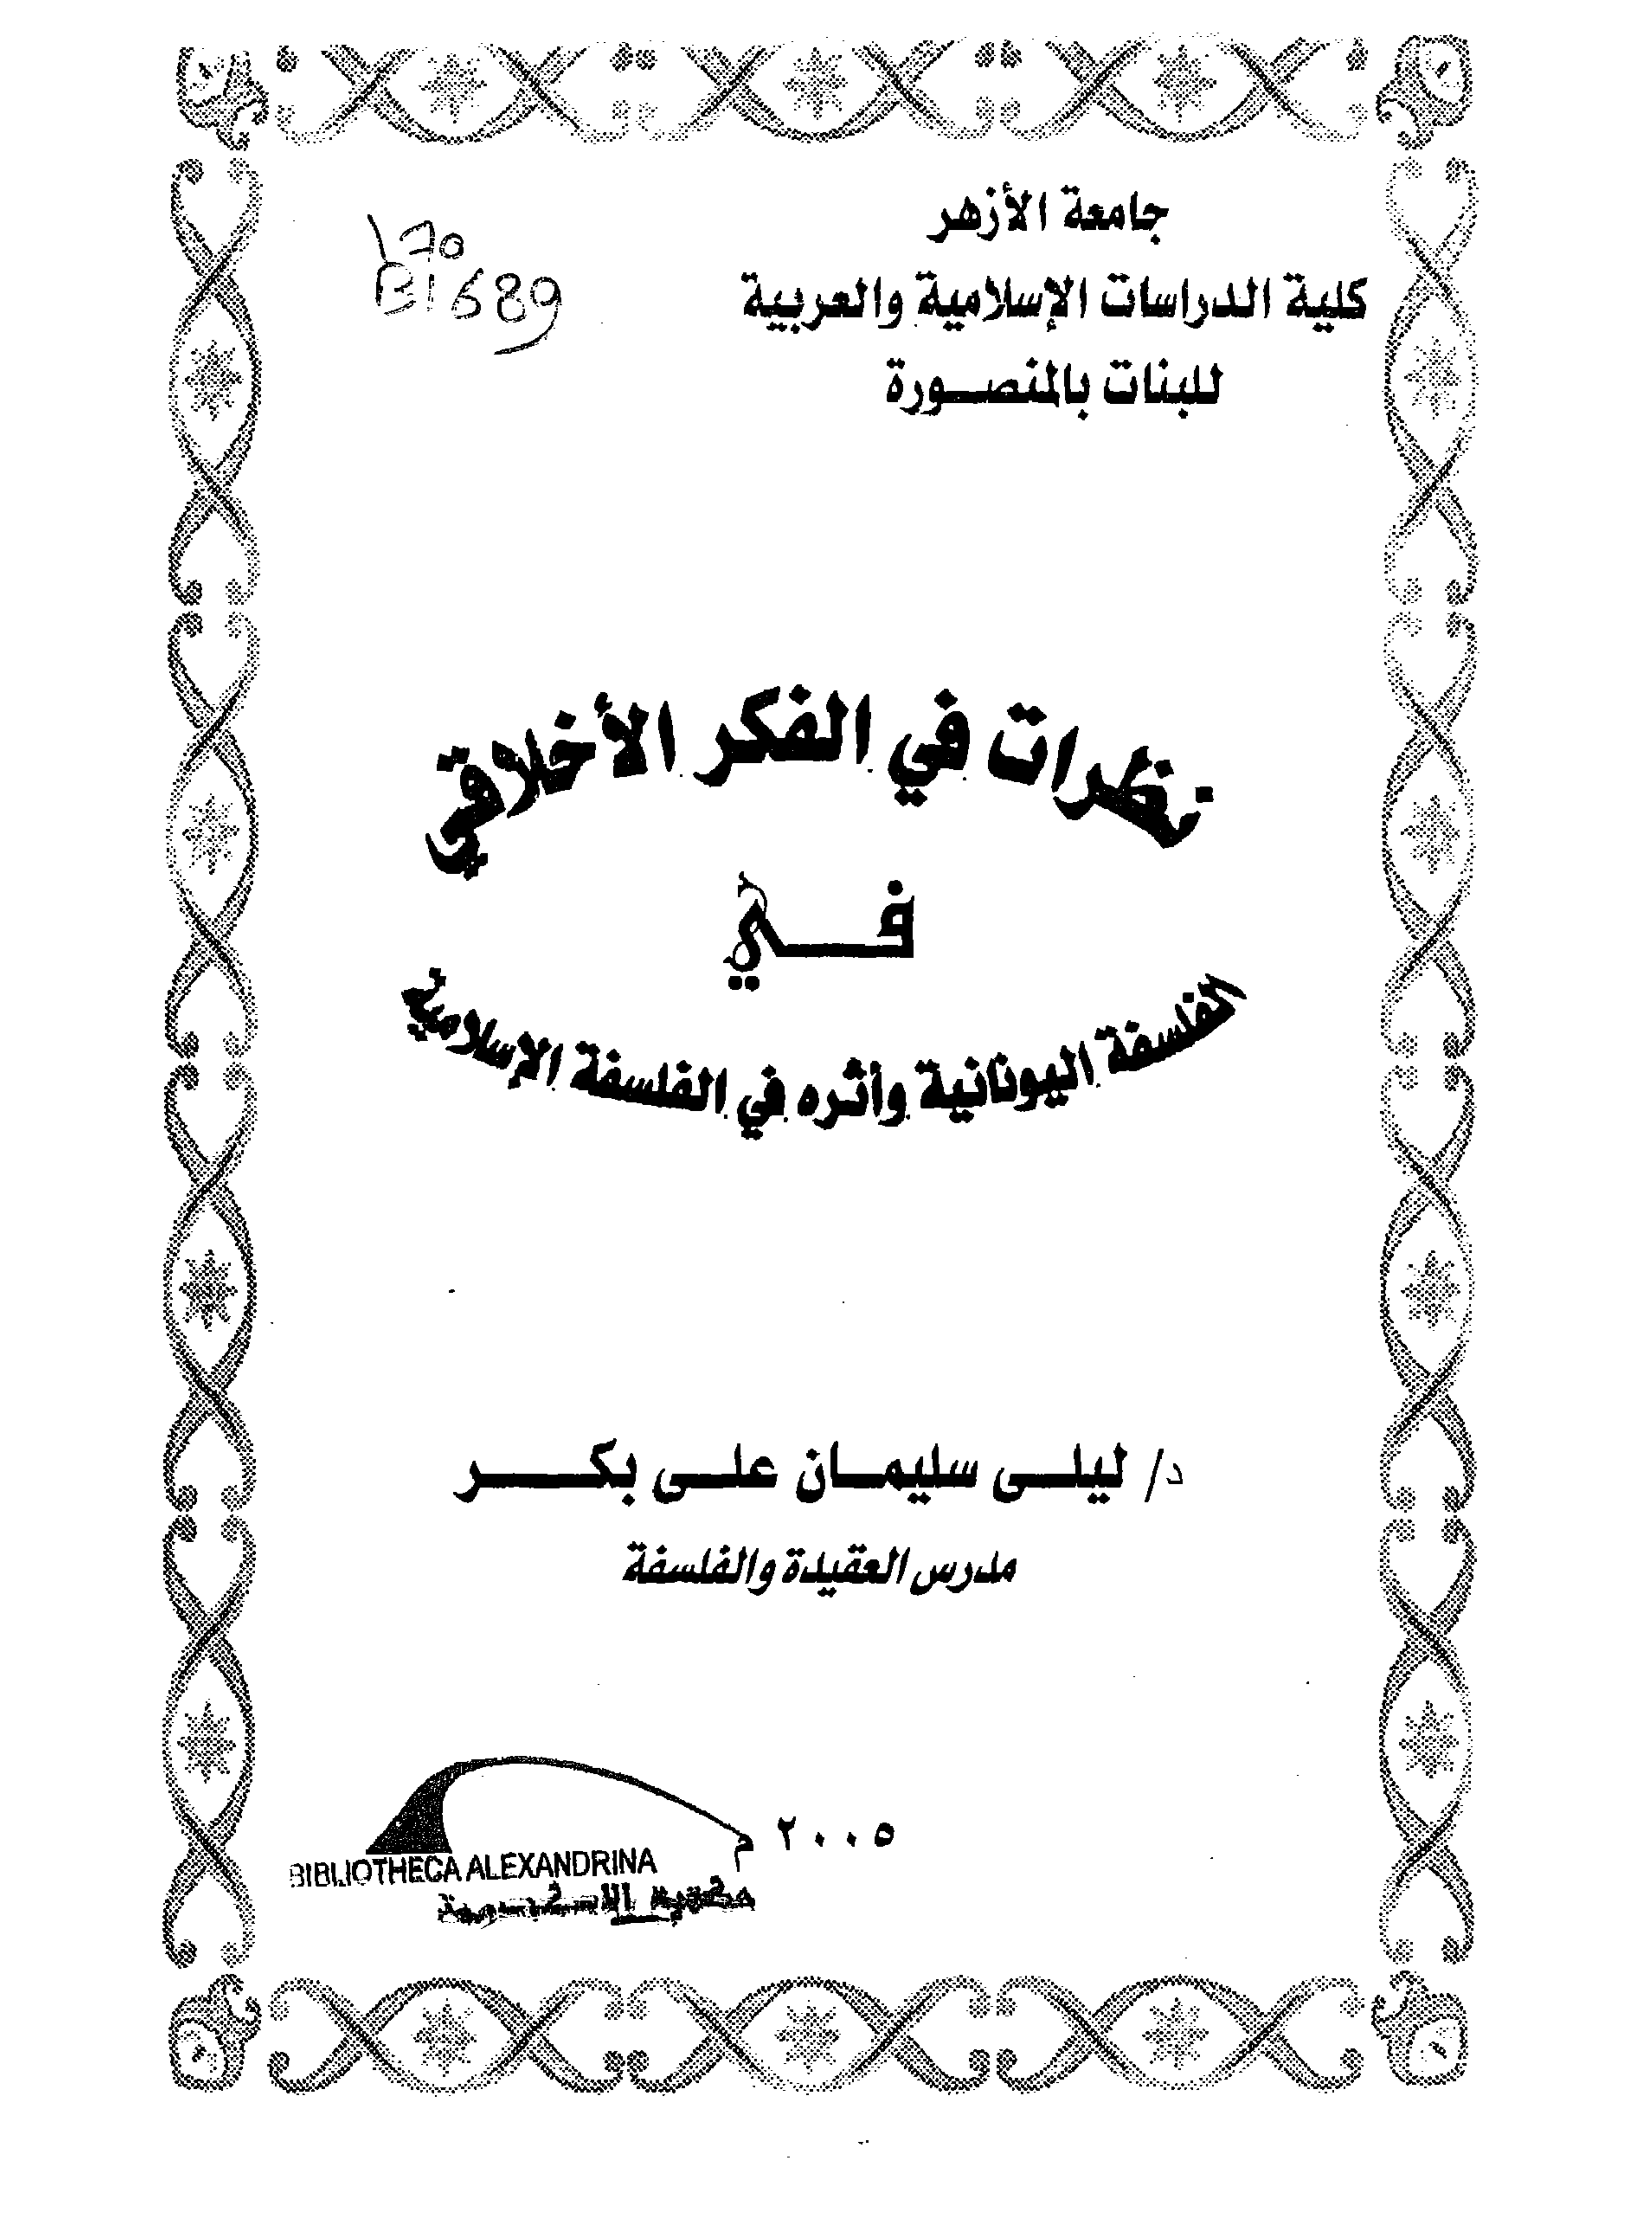 جامعة الأزهر
كلية الدراسات الإسلامية والعربية
للبنات بالمنصورة
170
B1689
نظرات في الفكر الأخلاقي
في
الفلسفة اليونانية وأثره في الفلسفة الإسلامية
د/ ليلى سليمان على بكر
مدرس العقيدة والفلسفة
٢٠٠٥ م
BIBLIOTHECA ALEXANDRINA
مكتبة الإسكندرية